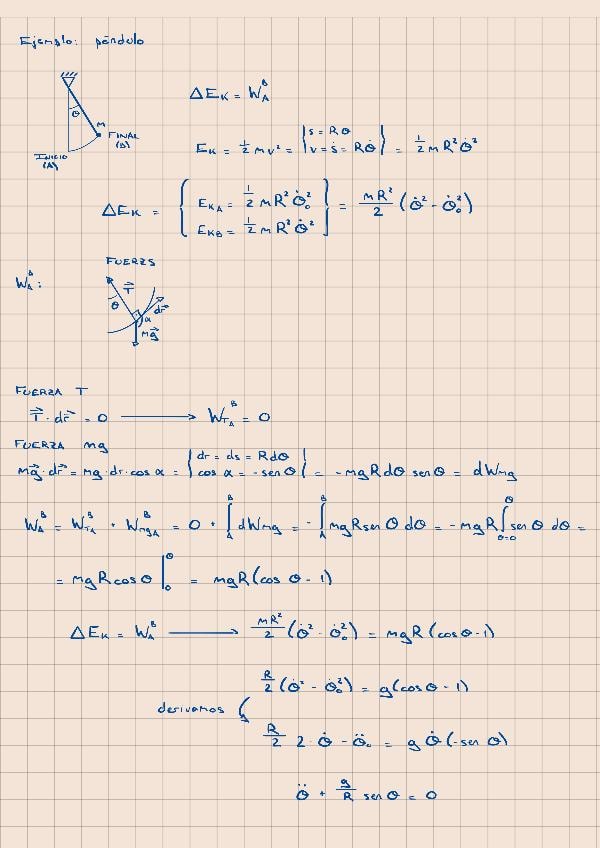 Ejemplo: péndulo
ΔE_K = W_A^B
θ
M
FINAL
(B)
INICIO
(A)
E_K = 1/2 m v² = | s = Rθ   v = ṡ = Rθ̇ | = 1/2 m R² θ̇²
ΔE_K = { E_KA = 1/2 m R² θ̇₀²   E_KB = 1/2 m R² θ̇² } = mR²/2 (θ̇² - θ̇₀²)
FUERZS
W_A^B :
T⃗
θ
dr⃗
α
mg⃗
FUERZA T
T⃗ · dr⃗ = 0 ⟶ W_TA^B = 0
FUERZA mg
mg⃗ · dr⃗ = mg · dr · cos α = | dr = ds = Rdθ   cos α = - sen θ | = - mgRdθ senθ = dW_mg
W_A^B = W_TA^B + W_mgA^B = 0 + ∫_A^B dW_mg = - ∫_A^B mgRsen θ dθ = - mgR ∫_θ=0^θ sen θ dθ =
= mgRcos θ |_0^θ = mgR(cos θ - 1)
ΔE_K = W_A^B ⟶ mR²/2 (θ̇² - θ̇₀²) = mgR (cosθ - 1)
R/2 (θ̇² - θ̇₀²) = g(cosθ - 1)
derivamos
R/2 2 · θ̇ - θ̈₀ = g θ̇ (-sen θ)
θ̈ + g/R senθ = 0